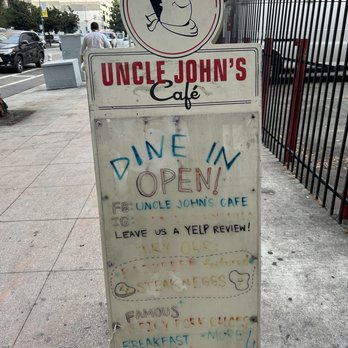 UNCLE JOHN'S
Café
DINE IN
OPEN!
FB: UNCLE JOHN'S CAFE
IG:
LEAVE US A YELP REVIEW!
TRY OUR
STEAK N EGGS
FAMOUS
BREAKFAST